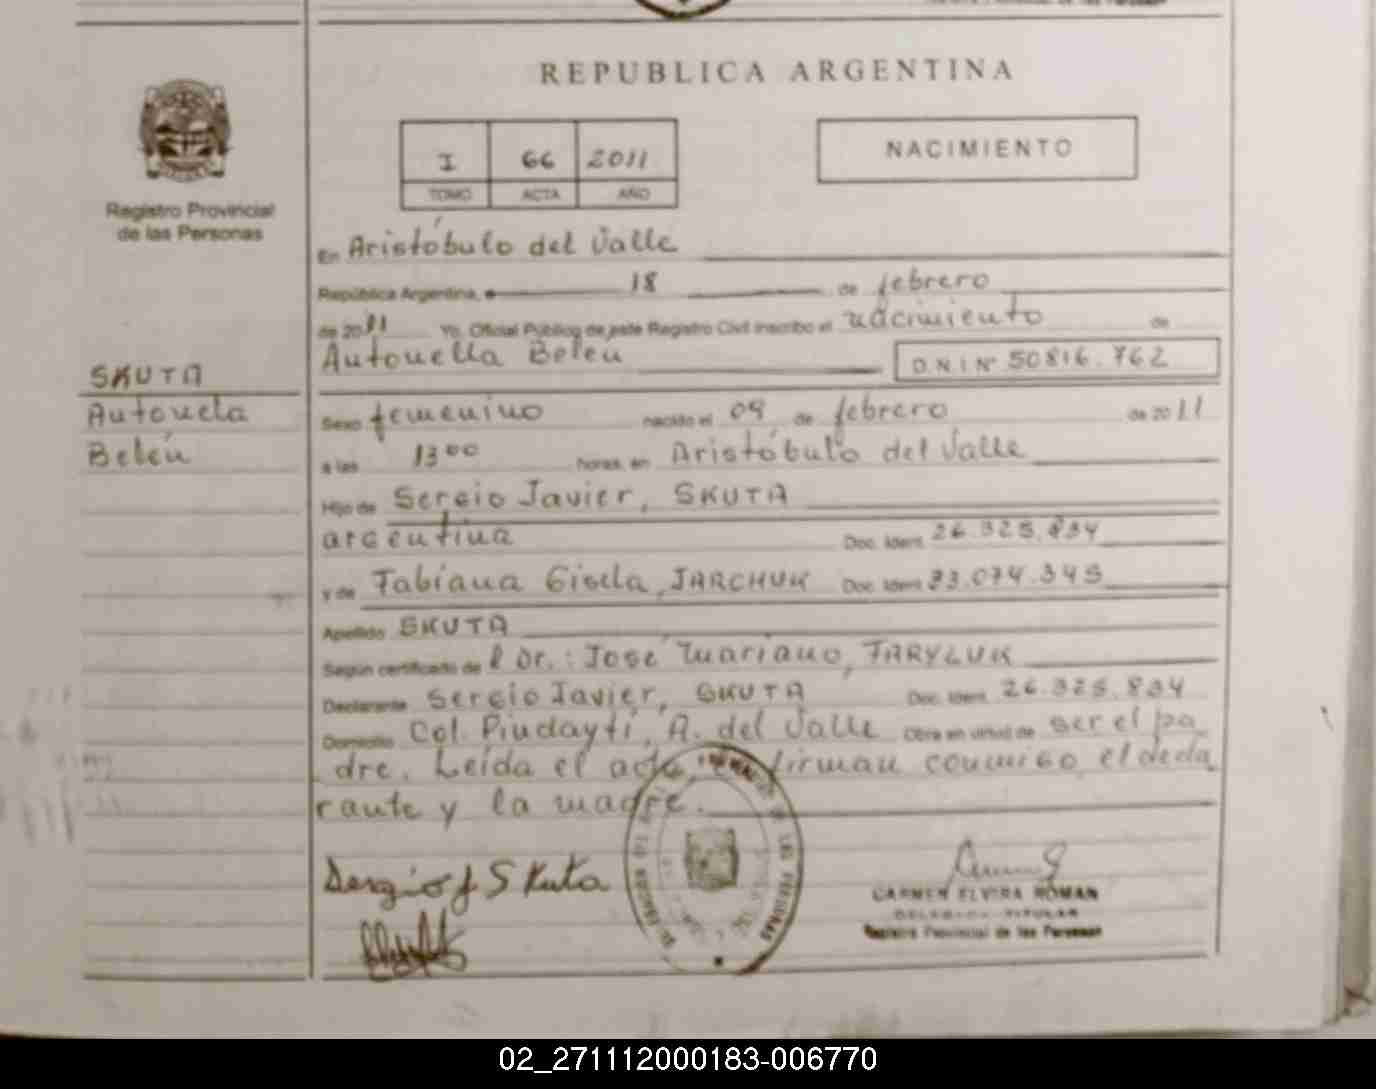 REPUBLICA ARGENTINA
I 66 2011
TOMO ACTA AÑO
NACIMIENTO
Registro Provincial
de las Personas
En Aristóbulo del Valle
República Argentina, 18 de febrero
de 2011 Yo, Oficial Público de este Registro Civil inscribo el nacimiento de
Antonella Belén D.N.I Nº 50816.762
SKUTA
Antonela
Belén
Sexo femenino nacido el 09 de febrero de 2011
a las 13 00 horas, en Aristóbulo del Valle
Hijo de Sergio Javier, SKUTA
argentina Doc. Ident. 26.325.834
y de Fabiana Gisela, JARCHUK Doc. Ident. 33.074.345
Apellido SKUTA
Según certificado de l Dr.: José Mariano, TARYLUK
Declarante Sergio Javier, SKUTA Doc. Ident. 26.325.834
Domicilio Col. Pindaytí, A. del Valle Obra en virtud de ser el pa
dre. Leída el acta firman conmigo el decla
rante y la madre.
Sergio J Skuta
CARMEN ELVIRA ROMAN
DELEGADA TITULAR
Registro Provincial de las Personas
02_271112000183-006770